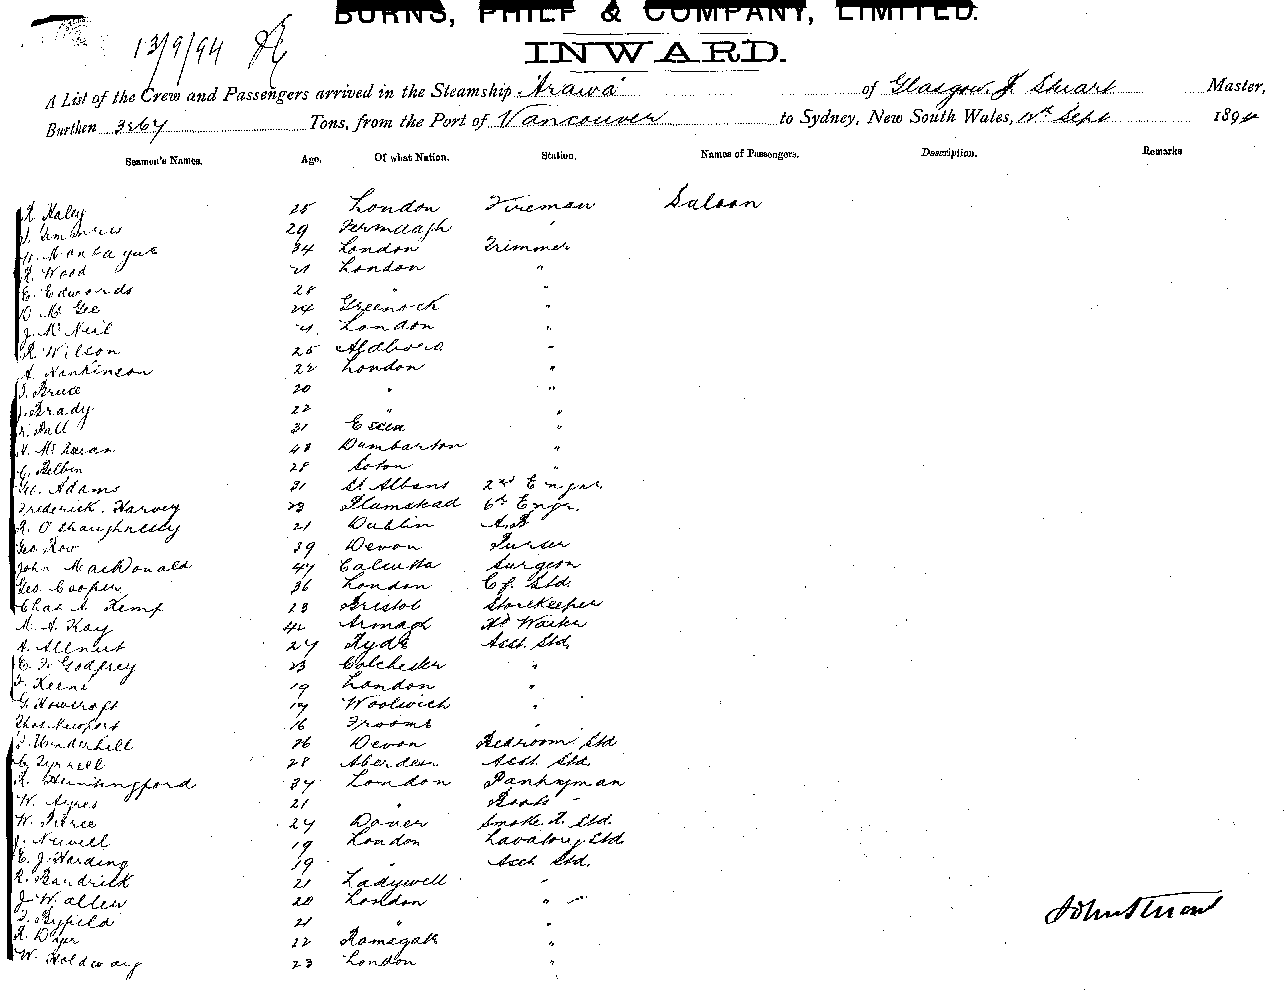 BURNS, PHILP & COMPANY, LIMITED.
13/9/94
INWARD.
A List of the Crew and Passengers arrived in the Steamship Arawa of Glasgow, J Stuart Master,
Burthen 3267 Tons, from the Port of Vancouver to Sydney, New South Wales, Sept 1894
Seamen's Names. Age. Of what Nation. Station. Names of Passengers. Description. Remarks
R. Haley 25 London Fireman Saloon
29 Fermanagh "
Montague 34 London Trimmer
R. Wood 21 London "
E. Edwards 28 " "
D. McGee 24 Greenock "
J. McNeil 21 London "
R. Wilson 25 "
A. Hankinson 22 London "
J. Bruce 20 " "
J. Brady 22 " "
31 Essex "
48 Dumbarton "
C. Belbin 28 Soton "
Geo. Adams 31 St Albans 2nd Engnr
Frederick. Harvey 23 Plumstead 6th Engr.
R. O'Shaughnessy 21 Dublin A.B
Geo Row 39 Devon Purser
John MacDonald 47 Calcutta Surgeon
Geo. Cooper 36 London Cf. Std.
Chas A. Kemp 23 Bristol Storekeeper
M. A. Kay 42 Armagh Hd Waiter
A. Allnut 27 Ryde Asst. Std.
E. F. Godfrey 23 Colchester "
F. Keene 19 London "
G. Howcroft 19 Woolwich "
Thos Newport 16 Froome "
J. Underhill 26 Devon Bedroom Std
C. Tyrrell 28 Aberdeen Asst Std.
R. Huntingford 37 London Pantryman
W. Ayres 21 " Boots
W. Pierce 27 Dover Smoke R. Std.
J. Newell 19 London Lavatory Std
E. J. Harding 19 " Asst. Std.
R. Bandrick 21 Ladywell "
J W. Allen 20 London "
J. Byfield 21 " "
R. Dyer 22 Ramsgate "
W. Holdway 23 London "
John Stuart